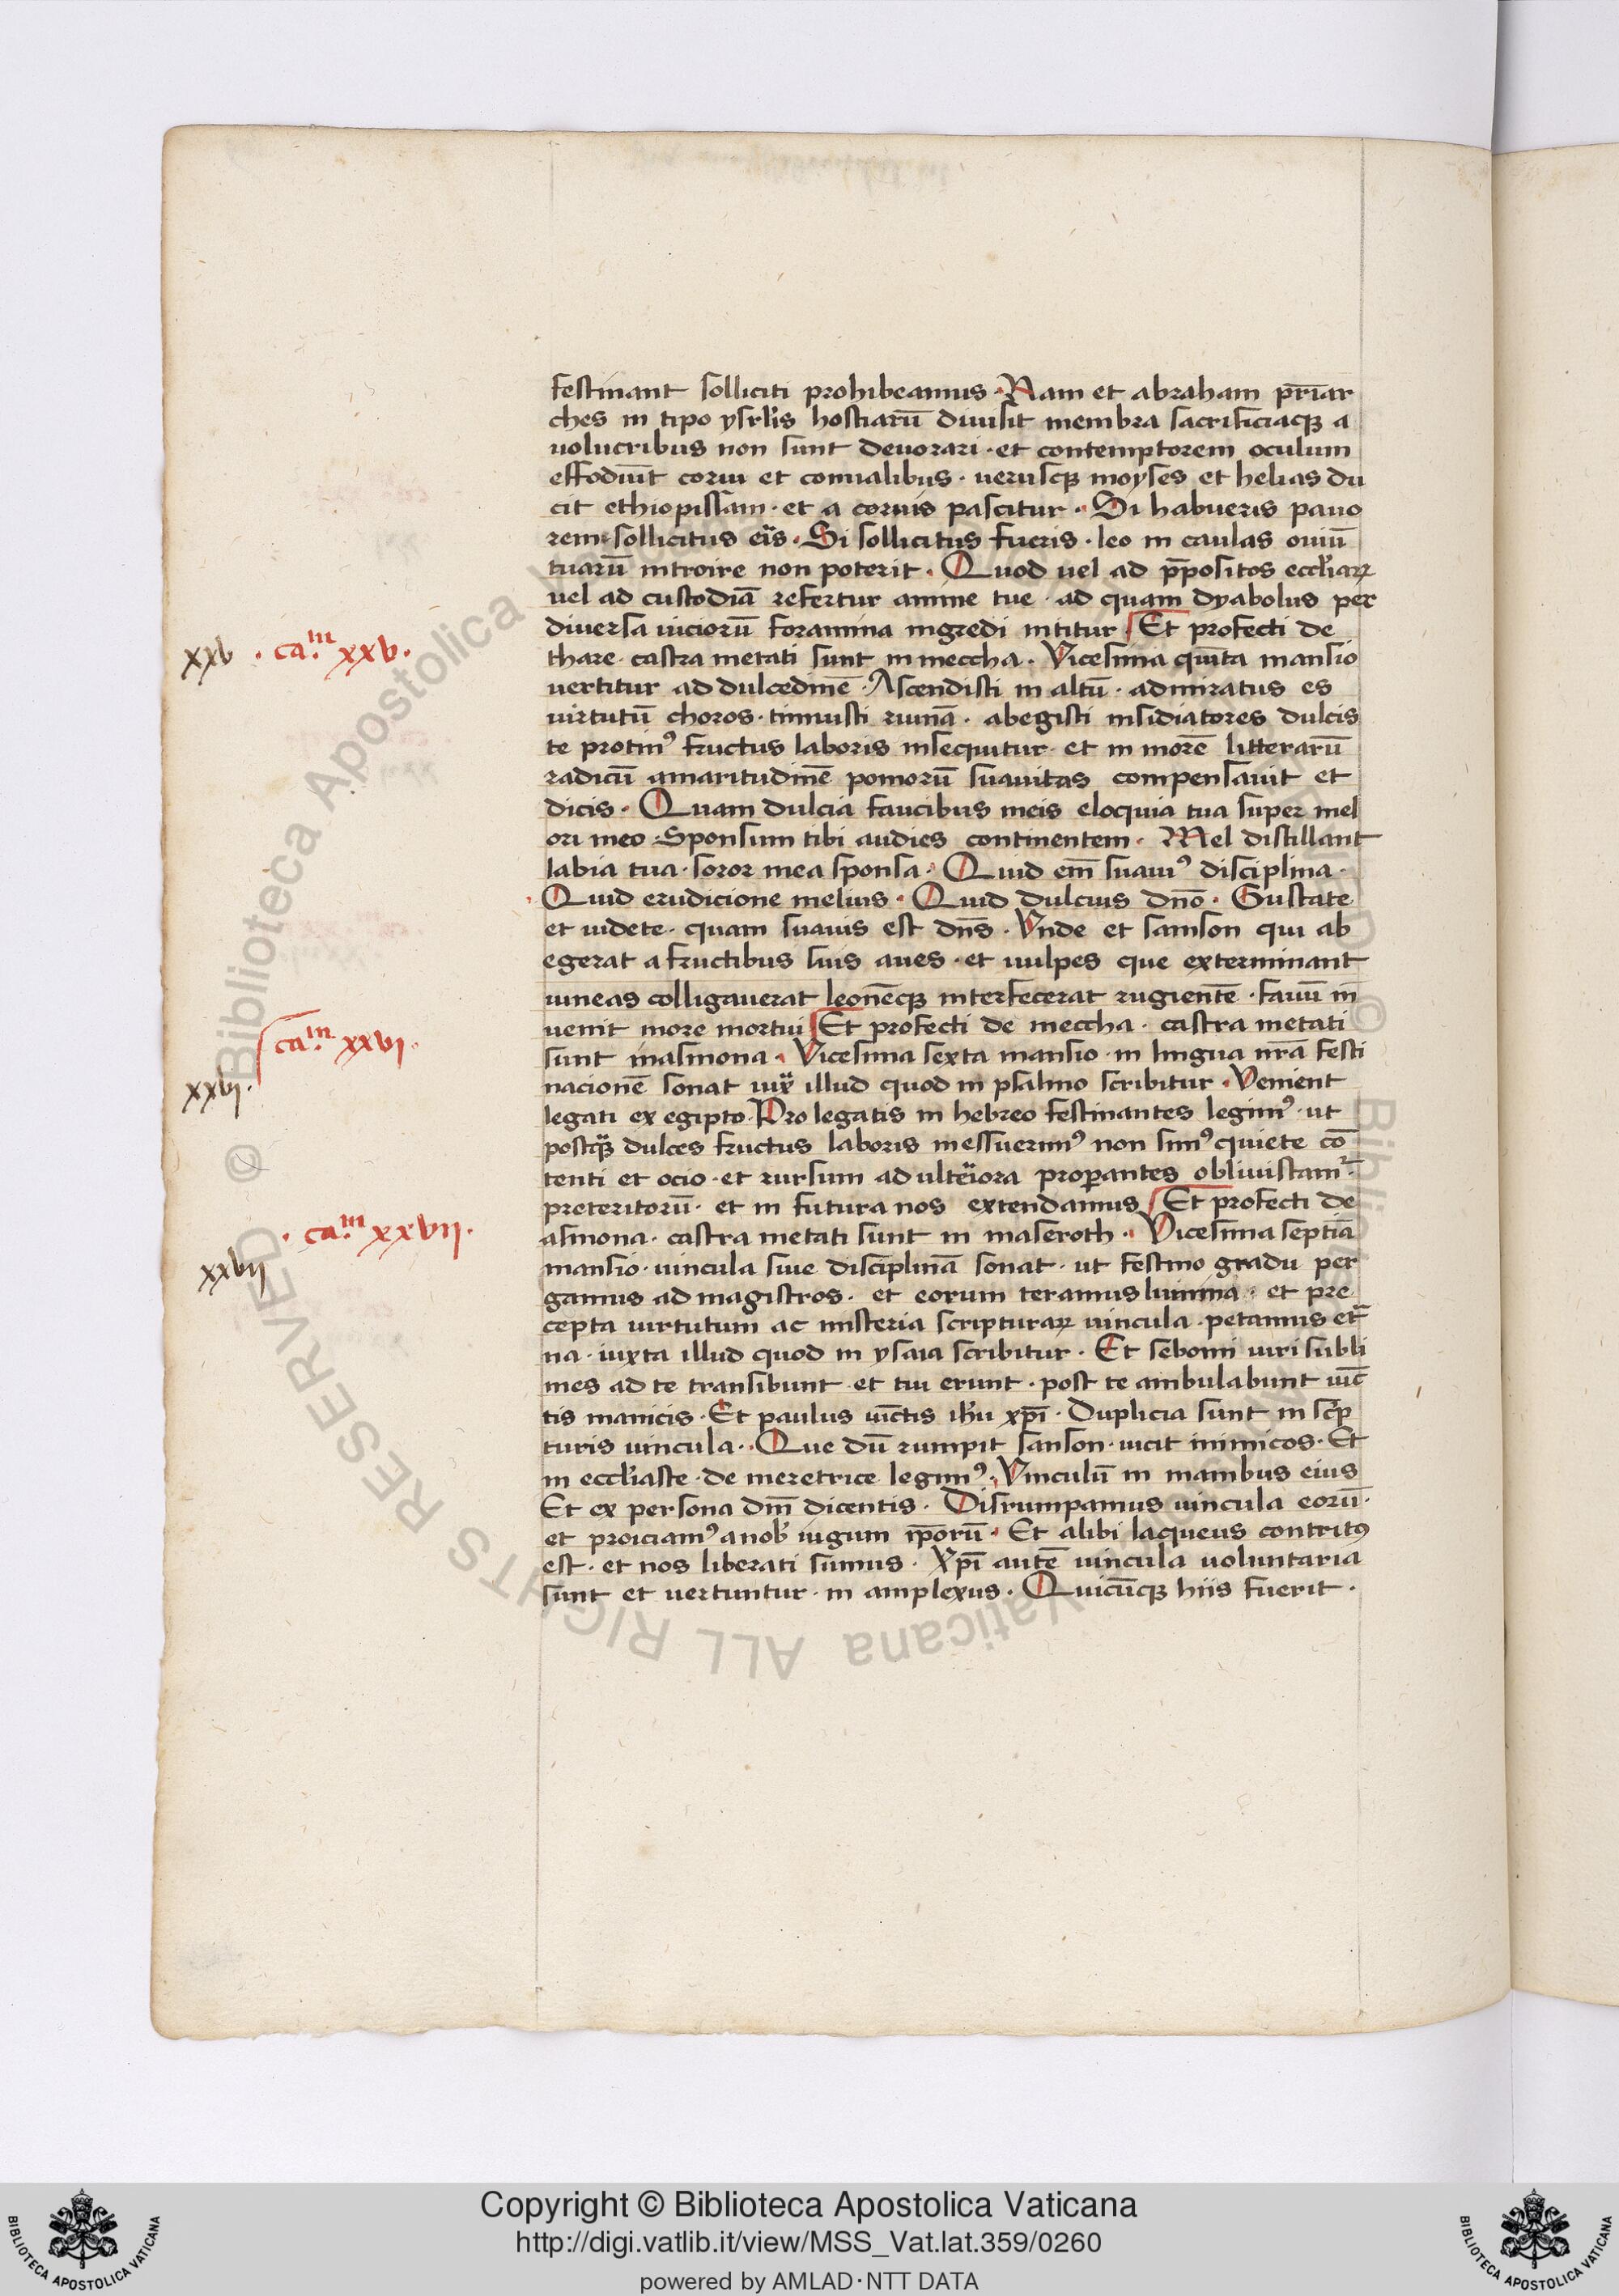 festinant solliciti prohibeamus · Nam et abraham pr̄iar
ches in tipo ysrl̓is hostiarū diuisit membra sacrificiaqꝫ a
uolucribus non sunt deuorari · et contemptorem oculum
effodiūt corui et conualibus · uerusqꝫ moyses et helias du
cit ethiopissam · et a coruis pascitur · Si habueris pauo
rem sollicitus eīs · Si sollicitus fueris · leo in caulas ouiū
tuarū introire non poterit · Quod uel ad p̄positos eccl̓iaꝝ
uel ad custodiā refertur anime tue · ad quam dyabolus per
diuersa uiciorū foramina ingredi nititur Et profecti de
xxv · ca.m xxv ·
thare · castra metati sunt in meccha · Vicesima quīta mansio
vertitur ad dulcedinē · Ascendisti in altū · admiratus es
uirtutū choros · timuisti ruinā · abegisti insidiatores dulcis
te protinꝰ fructus laboris insequitur · et in morē litterarū
radicū amaritudinē pomorū suauitas compensauit et
dicis · Quam dulcia faucibus meis eloquia tua super mel
ori meo · Sponsum tibi audies continentem · Mel distillant
labia tua · soror mea sponsa · Quid em̄ suauiꝰ disciplina ·
Quid erudicione melius · Quid dulcius dn̄o · Gustate
et uidete · quam suauis est dn̄s · Vnde et samson qui ab
egerat a fructibus suis aues · et uulpes que exterminant
uineas colligauerat leonēqꝫ interfecerat rugientē · fauū in
uenit more mortui Et profecti de meccha · castra metati
ca.m xxvi ·
sunt inasmona · Vicesima sexta mansio · in lingua nr̄a festi
xxvi ·
nacionē sonat iux̄ illud quod in psalmo scribitur · Venient
legati ex egipto · Pro legatis in hebreo festinantes legimꝰ · ut
postqꝫ dulces fructus laboris messuerimꝰ non simꝰ quiete cō
tenti et ocio · et rursum ad ulteriora properantes obliuiscam̄
preteritorū · et in futura nos extendamus Et profecti de
· ca.m xxvii ·
asmona · castra metati sunt in maseroth · Vicesima septīa
xxvii
mansio · uincula siue disciplinā sonat · ut festino gradu per
gamus ad magistros · et eorum teramus lumina · et pre
cepta uirtutum ac misteria scripturaꝝ uincula · petamus et̄
na · iuxta illud quod in ysaia scribitur · Et seboini uiri subli
mes ad te transibunt · et tui erunt · post te ambulabunt uīc
tis manicis · Et paulus uīctis ih̓u xp̄i · Duplicia sunt in sc̓p
turis uincula · Que dū rumpit sanson · uicit inimicos · Et
in eccl̓iaste · de meretrice legimꝰ · Vinculū in manibus eius
Et ex persona dn̄i dicentis · Disrumpamus uincula eorū ·
et proiciamꝰ a nob̓ iugum ip̄orū · Et alibi laqueus contritꝰ
est · et nos liberati sumus · Xp̄i autē uincula uoluntaria
sunt et uertuntur · in amplexus · Quicūqꝫ hiis fuerit ·
© Biblioteca Apostolica Vaticana ALL RIGHTS RESERVED
Copyright © Biblioteca Apostolica Vaticana
http://digi.vatlib.it/view/MSS_Vat.lat.359/0260
powered by AMLAD·NTT DATA
BIBLIOTECA APOSTOLICA VATICANA
BIBLIOTECA APOSTOLICA VATICANA